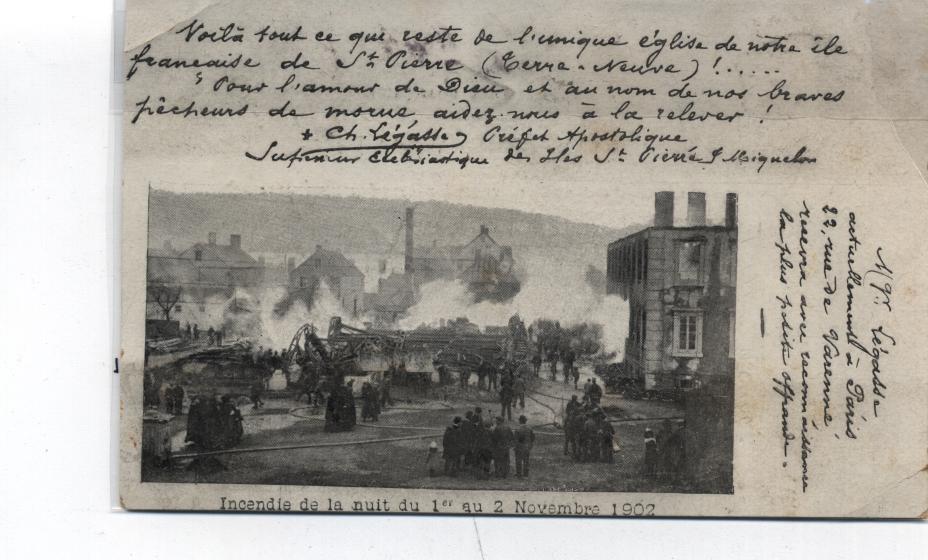 Voilà tout ce qui reste de l'unique église de notre île
française de St Pierre (Terre-Neuve) !.....
"Pour l'amour de Dieu et au nom de nos braves
pêcheurs de morue, aidez-nous à la relever !
+ Ch. Légasse, Préfet Apostolique
Supérieur Ecclésiastique des Iles St Pierre & Miquelon
Mgr Légasse
actuellement à Paris
22, rue de Varenne,
recevra avec reconnaissance
la plus petite offrande.
Incendie de la nuit du 1er au 2 Novembre 1902